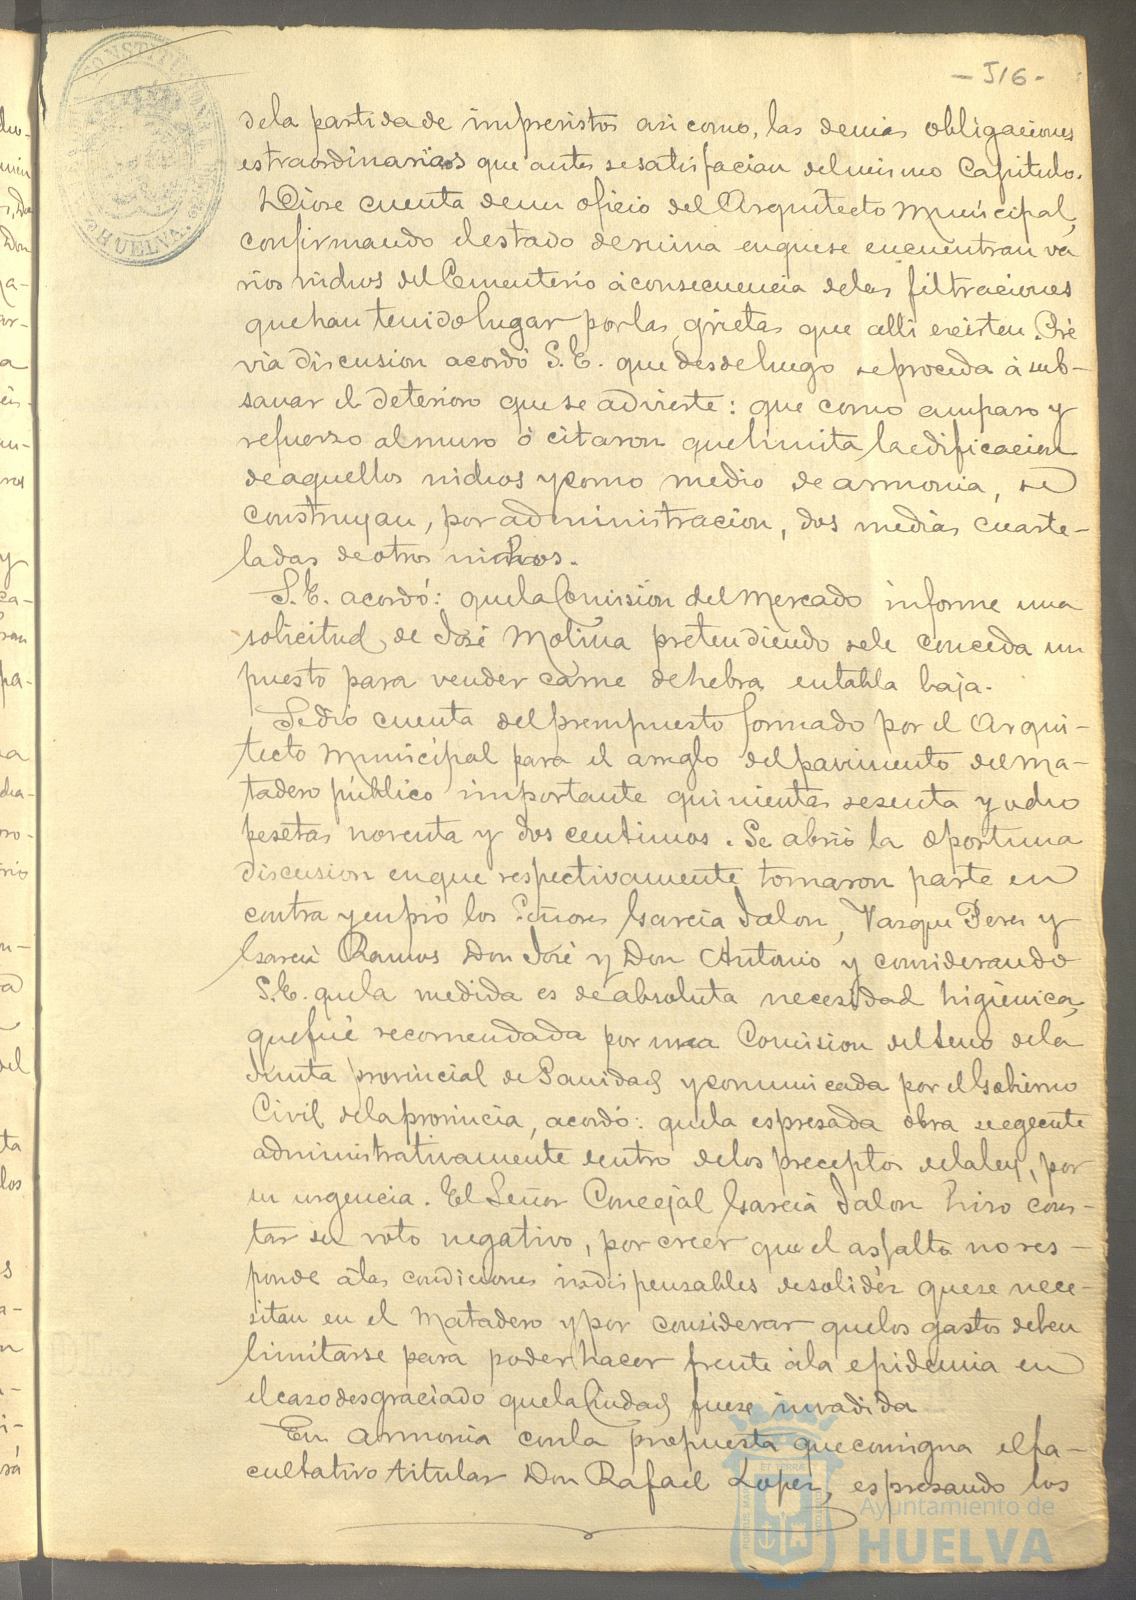 - 516 -
dela partida de imprevistos asi como, las demas obligaciones
estraordinarias que antes se satisfacian del mismo Capitulo.
Diose cuenta de un oficio del Arquitecto Municipal,
confirmando el estado de ruina en que se encuentran va
rios nichos del Cementerio á consecuencia de las filtraciones
que han tenido lugar por las grietas que alli existen. Pré
via discusion acordó S.E. que desde luego se proceda á sub-
sanar el deterioro que se advierte: que como amparo y
refuerzo al muro ó citaron que limita la edificacion
de aquellos nichos y como medio de armonia, se
construyan, por administracion, dos medias cuarte-
ladas de otros nichos.
S.E. acordó: que la Comision del Mercado informe una
solicitud de José Molina pretendiendo se le conceda un
puesto para vender carne de hebra en tabla baja.
Se dió cuenta del presupuesto formado por el Arqui-
tecto Municipal para el arreglo del pavimento del Ma-
tadero público importante quinientas sesenta y ocho
pesetas noventa y dos centimos. Se abrió la oportuna
discusion en que respectivamente tomaron parte en
contra y en pró los Señores Garcia Jalon, Vazquez Perez y
Garcia Ramos Don José y Don Antonio y considerando
S.E. que la medida es de absoluta necesidad higiénica,
que fué recomendada por una Comision del seno de la
Junta provincial de Sanidad y comunicada por el Gobierno
Civil de la provincia, acordó: que la espresada obra se egecute
administrativamente dentro de los preceptos de la ley, por
su urgencia. El Señor Concejal Garcia Jalon hizo cons-
tar su voto negativo, por creer que el asfalto no res-
ponde á las condiciones indispensables de solidéz que se nece-
sitan en el Matadero y por considerar que los gastos deben
limitarse para poder hacer frente á la epidemia en
el caso desgraciado que la Ciudad fuese invadida
En armonia con la propuesta que consigna el fa-
cultativo titular Don Rafael Lopez, espresando los
HUELVA.
Ayuntamiento de
HUELVA